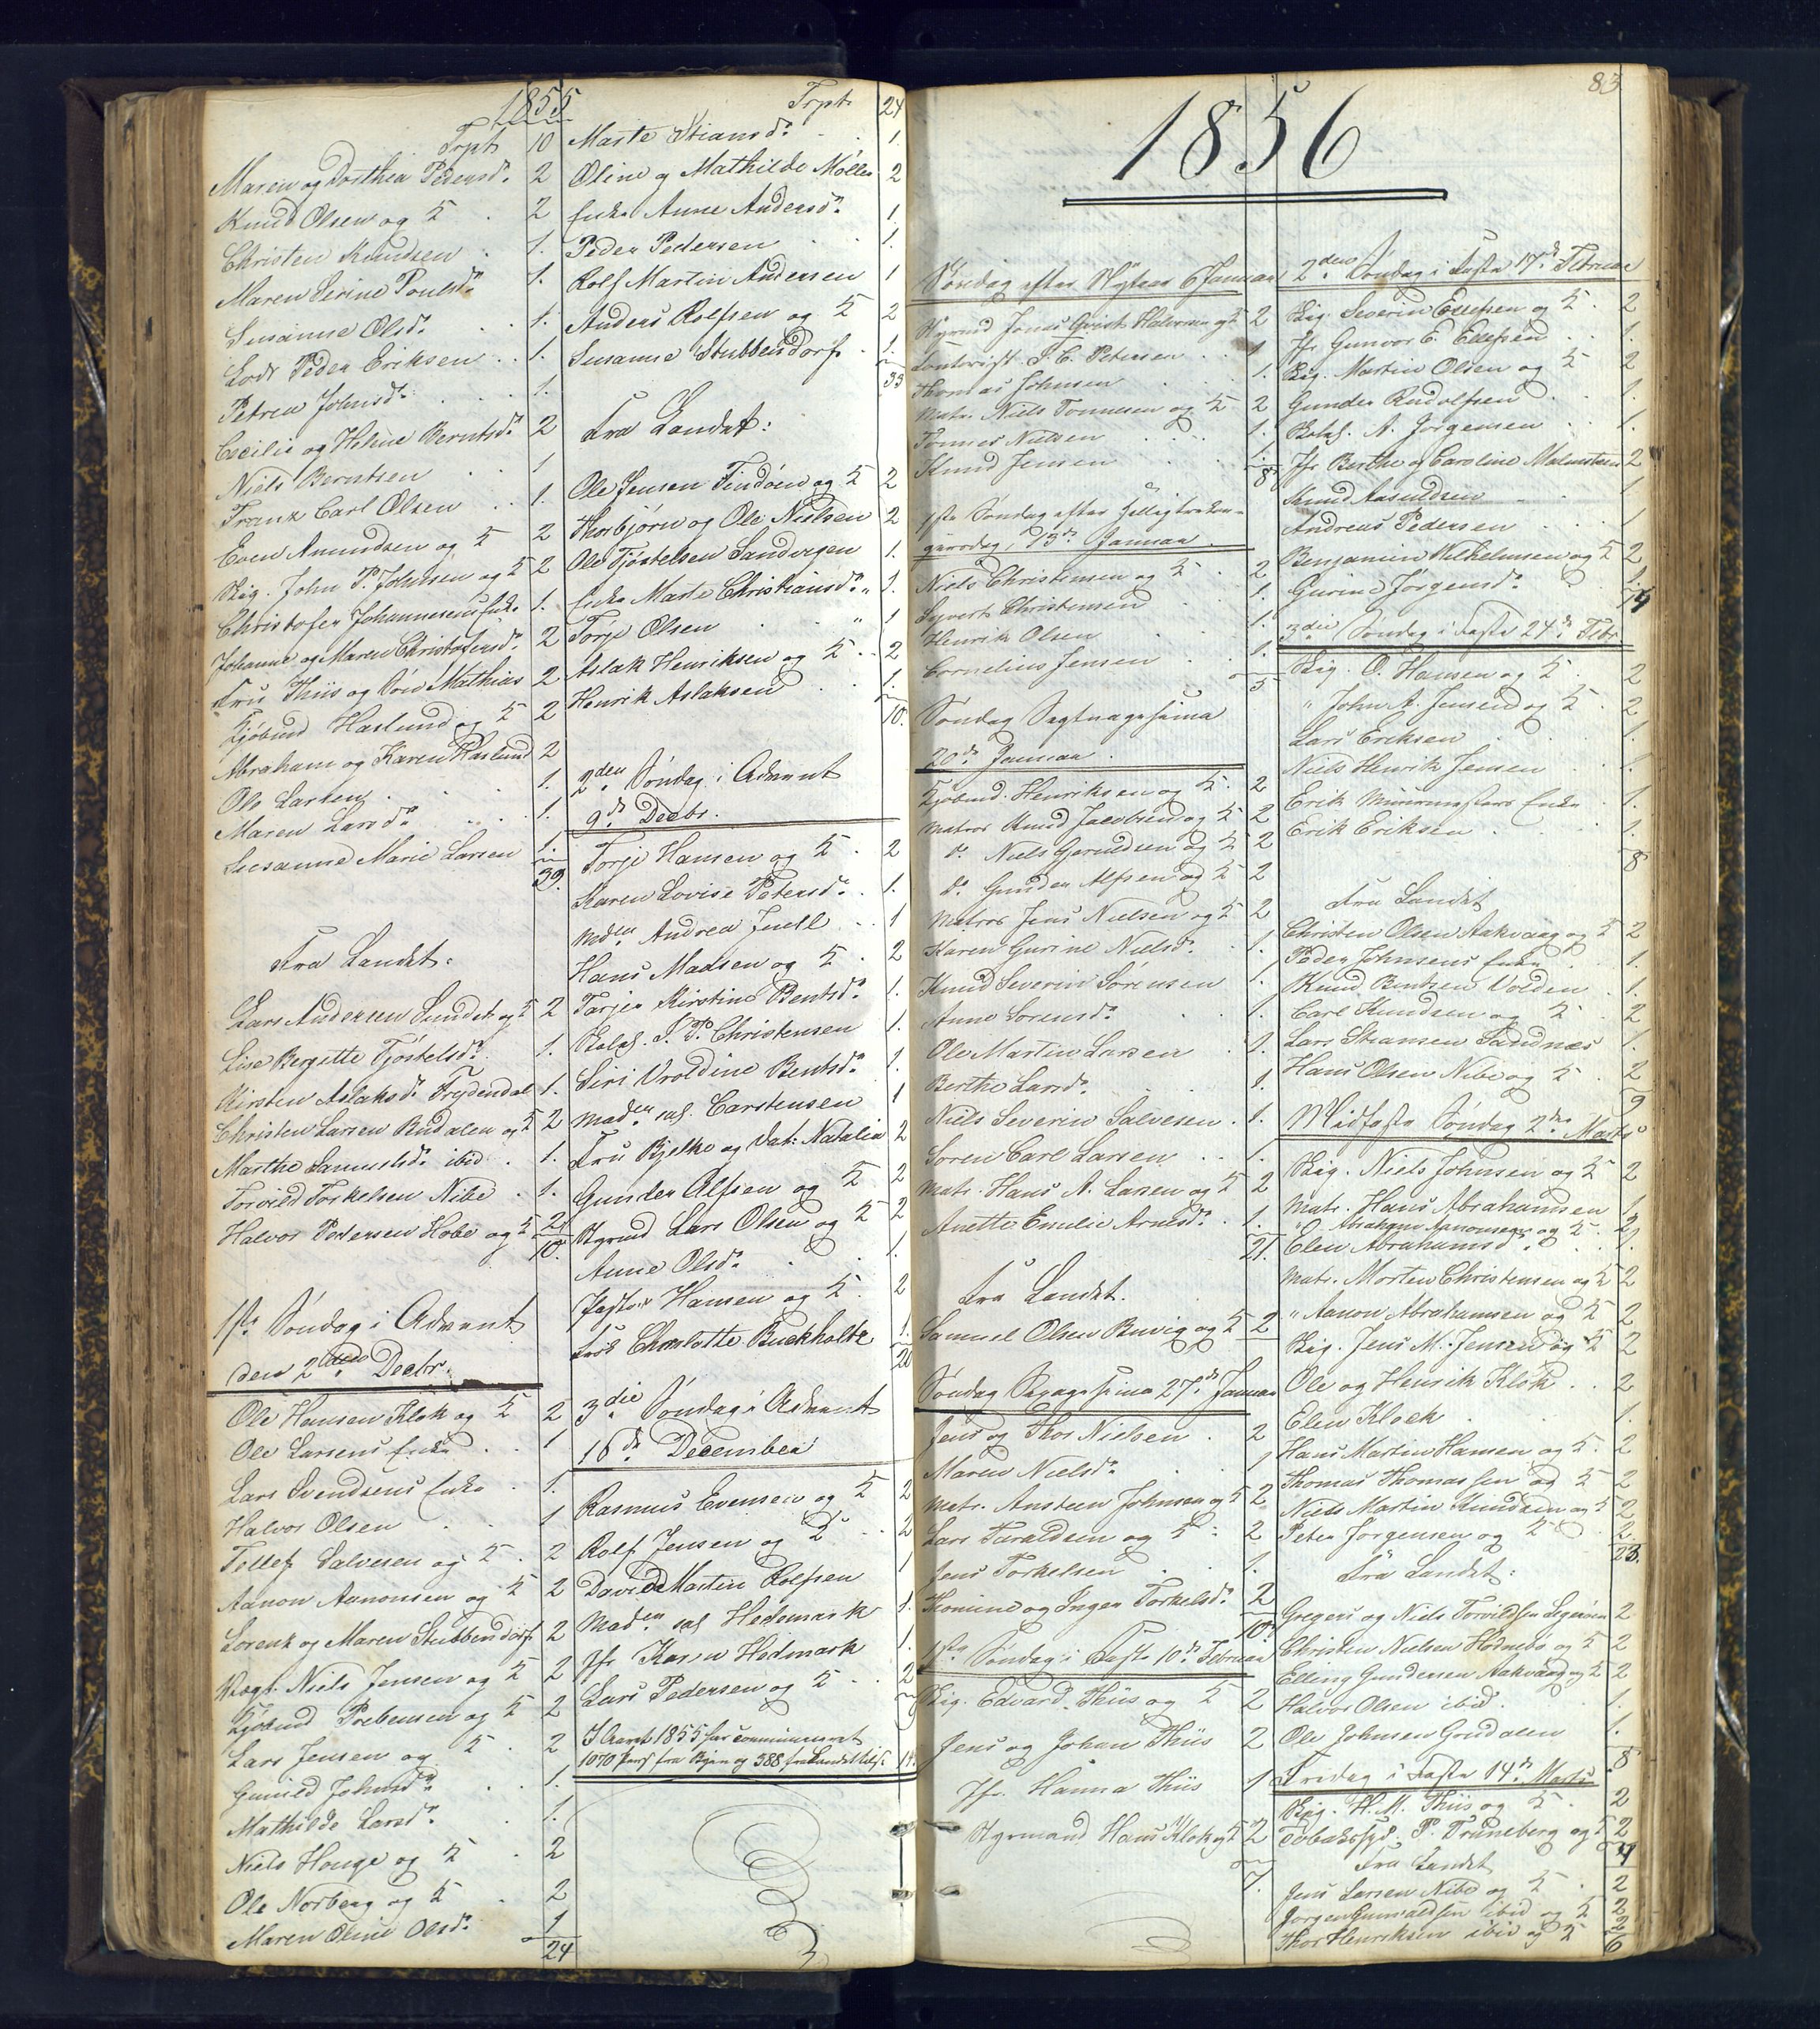 1855
Trpt 10
Maren og Dorthea Pedersd. 2
Knud Olsen og K 2
Christen Knudsen 1.
Maren Serine Poulsd. 1.
Susanne Olsd. 1.
Lods Peder Eriksen 1.
Petrea Johnsd. 1.
Cecilie og Helene Berntsd. 2
Niels Berntsen 1
Franz Carl Olsen 1.
Even Amundsen og K 2
Skig. John P. Johnsen og K 2
Christofer Johannesens Enke 1.
Johanne og Maren Christofersd. 2
Fru Thiis og Søn Mathias 2
Kjøbmd Haslund og K 2
Abraham og Karen Haslund 2
Ole Larsen 1.
Maren Larsd. 1.
Susanne Marie Larsen 1.
39.
Fra Landet:
Lars Andersen Sundet og K 2
Lise Bergitte Tjøstelsd. 1.
Kirsten Aslaksd. Frydendal 1.
Christen Larsen Rudalen og K 2
Marthe Samuelsd. ibid 1.
Torvild Torkelsen Nibe 1.
Halvor Pedersen Hobe og K 2
10.
1ste Søndag i Advent
den 2den Decbr.
Ole Hansen Klok og K 2
Ole Larsens Enke 1
Lars Svendsens Enke 1.
Halvor Olsen 1
Tellef Salvesen og K 2
Aanon Aanonsen og K 2
Lorenz og Maren Stubbendorf 2
Vægt. Niels Jensen og K 2
Kjøbmd Prebensen og K 2
Lars Jensen og K 2
Gunild Johnsd. 1.
Mathilde Larsd. 1.
Niels Houge og K 2
Ole Norberg og K 2
Maren Oline Olsd. 1
24
Trpt 24
Marte Stiansd. 1.
Oline og Mathilde Møller 2
Enke Anne Andersd. 1.
Peder Pedersen 1.
Rolf Martin Andersen 1
Anders Rolfsen og K 2
Susanne Stubbendorf 1.
33
Fra Landet:
Ole Jensen Findøen og K 2
Thorbjørn og Ole Nielsen 2
Ole Tjøstelsen Sandvigen 1.
Enke Marte Christiansd. 1.
Torje Olsen 1
Aslak Henriksen og K 2
Henrik Aslaksen 1.
10.
2den Søndag i Advent
9de Decbr.
Torje Hansen og K 2
Karen Lovise Petersd. 1.
Mdm Andrea Juell 1
Hans Madsen og K 2
Torjer Kirstine Bentsd. 1.
Bolgf. S. P. Christensen 1
Siri Vroldine Bentsd. 1.
Madm sal. Carstensen 1
Fru Bjelke og Dat: Natalia 2
Gunder Alfsen og K 2
Styrmd Lars Olsen og K 2
Anne Olsd. 1.
Pastor Hansen og K 2
Frøk Charlotte Buckholtz 1.
20
3die Søndag i Advent
16de December
Rasmus Evensen og K 2
Rolf Jensen og K 2
David Martin Rolfsen 1
Madm sal Hedemark 1.
Jfr Karen Hedmark 1.
Lars Pedersen og K 2
9
I Aaret 1855 har communiceret
1070 Pers fra Byen og 388 fra Landet
83
1856
Søndag efter Nytaar 6 Januar
Styrmd Jonas Qvist Halvorsen og K 2
Contorist J. C. Petersen 1
Thomas Johnsen 1.
Matr. Niels Tønnesen og K 2
Tønnes Nielsen 1.
Knud Jensen 1.
8
1ste Søndag efter Helligtrekon-
gersdag, 13de Januar.
Niels Christensen og K 2
Syvert Christensen 1.
Henrik Olsen 1.
Cornelius Jensen 1.
5
Søndag Septuagesima
20de Januar.
Kjøbmd. Henriksen og K 2
Matros Knud Jacobsen og K 2
d. Niels Gjeruldsen og K 2
d. Gunder Alfsen og K 2
Matros Jens Nielsen og K 2
Karen Gurine Nielsd. 1.
Knud Severin Sørensen 1.
Anne Sørensd. 1.
Ole Martin Larsen 1.
Berthe Larsd. 1.
Niels Severin Salvesen 1.
Søren Carl Larsen 1.
Matr. Hans A. Larsen og K 2
Anette Emilie Arnesd. 1.
21.
Fra Landet.
Samuel Olsen Buvig og K 2
Søndag Sexagesima 27de Januar
Jens og Thor Nielsen 2
Maren Nielsd. 1
Matr. Ansteen Johnsen og K 2
Lars Taraldsen og K 2
Jens Torkelsen 1.
Thomine og Inger Torkelsd. 2
10.
1ste Søndag i Faste 10de Februar
Skig. Edvard Thiis og K 2
Jens og Johan Thiis 2
Jfr. Hanna Thiis 1
Styrmand Hans Klok og K 2
7.
2den Søndag i Faste 17de Februar
Skig. Severin Ellefsen og K 2
Jfr Gunvor E. Ellefsen 1.
Skig. Martin Olsen og K 2
Gunder Rudolfsen 1.
Bolgf. A. Jørgensen 1.
Jfr Berthe og Caroline Malmstrøm 2
Knud Aasuldsen 1
Andreas Pedersen 1
Benjamin Vilhelmsen og K 2
Gurine Jørgensd. 1.
14
3die Søndag i Faste 24de Febr.
Skig. O. Hansen og K 2
" John A. Jensen og K 2
Lars Eriksen 1.
Niels Henrik Jensen 1.
Erik Muurmesters Enke 1.
Erik Eriksen 1.
8
Fra Landet
Christen Olsen Aakvaag og K 2
Peder Johnsens Enke 1.
Knud Bentsen Volden 1.
Carl Knudsen og K 2
Lars Stiansen Sandnæs 1.
Hans Olsen Nibe og K 2
9
Midfaste Søndag 2den Marts
Skig. Niels Johnsen og K 2
Matr. Hans Abrahamsen 1
" Abraham Aanonsen og K 2
Elen Abrahamsd. 1.
Matr. Morten Christensen og K 2
" Aanon Abrahamsen og K 2
Skig. Jens M. Jensen og K 2
Ole og Henrik Klok 2
Elen Klock 1.
Hans Martin Hansen og K 2
Thomas Thomassen og K 2
Niels Martin Knudsen og K 2
Peter Jørgensen og K 2
23.
Fra Landet:
Gregers og Niels Torvildsen Legerøen 2
Christen Nielsen Hødnebø og K 2
Elling Gundersen Aakvaag og K 2
Halvor Olsen ibid. 1.
Ole Johnsen Grudalen 1.
8
Fredag i Faste 14de Marts
Skig. H. M. Thiis og K 2
Tobaksfbd. P. Truneberg og K 2
4
Fra Landet
Jens Larsen Nibe og K 2
Jørgen Gunvaldsen ibid og K 2
Thor Henriksen ibid og K 2
6